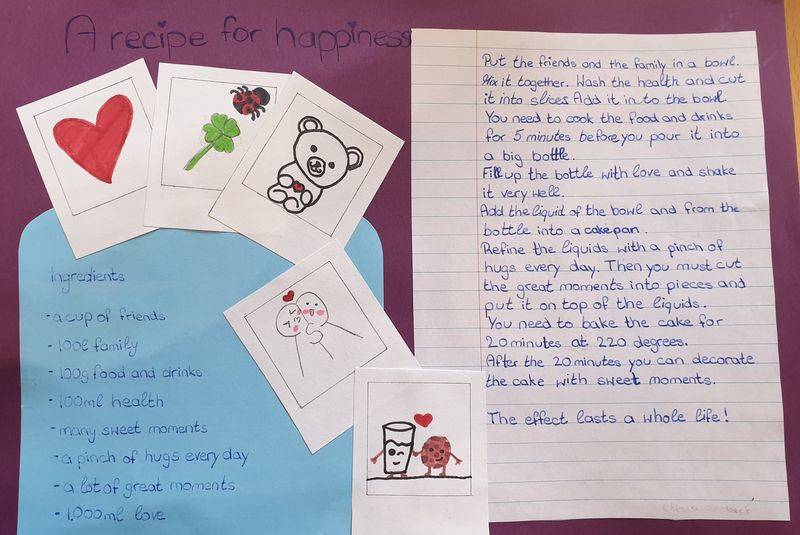 A recipe for happiness
Ingredients
- a cup of friends
- 100l family
- 100g food and drinks
- 100ml health
- many sweet moments
- a pinch of hugs every day
- a lot of great moments
- 1.000ml love
Put the friends and the family in a bowl.
Mix it together. Wash the health and cut
it into slices. Add it in to the bowl.
You need to cook the food and drinks
for 5 minutes before you pour it into
a big bottle.
Fill up the bottle with love and shake
it very well.
Add the liquid of the bowl and from the
bottle into a cakepan.
Refine the liquids with a pinch of
hugs every day. Then you must cut
the great moments into pieces and
put it on top of the liquids.
You need to bake the cake for
20 minutes at 220 degrees.
After the 20 minutes you can decorate
the cake with sweet moments.
The effect lasts a whole life!